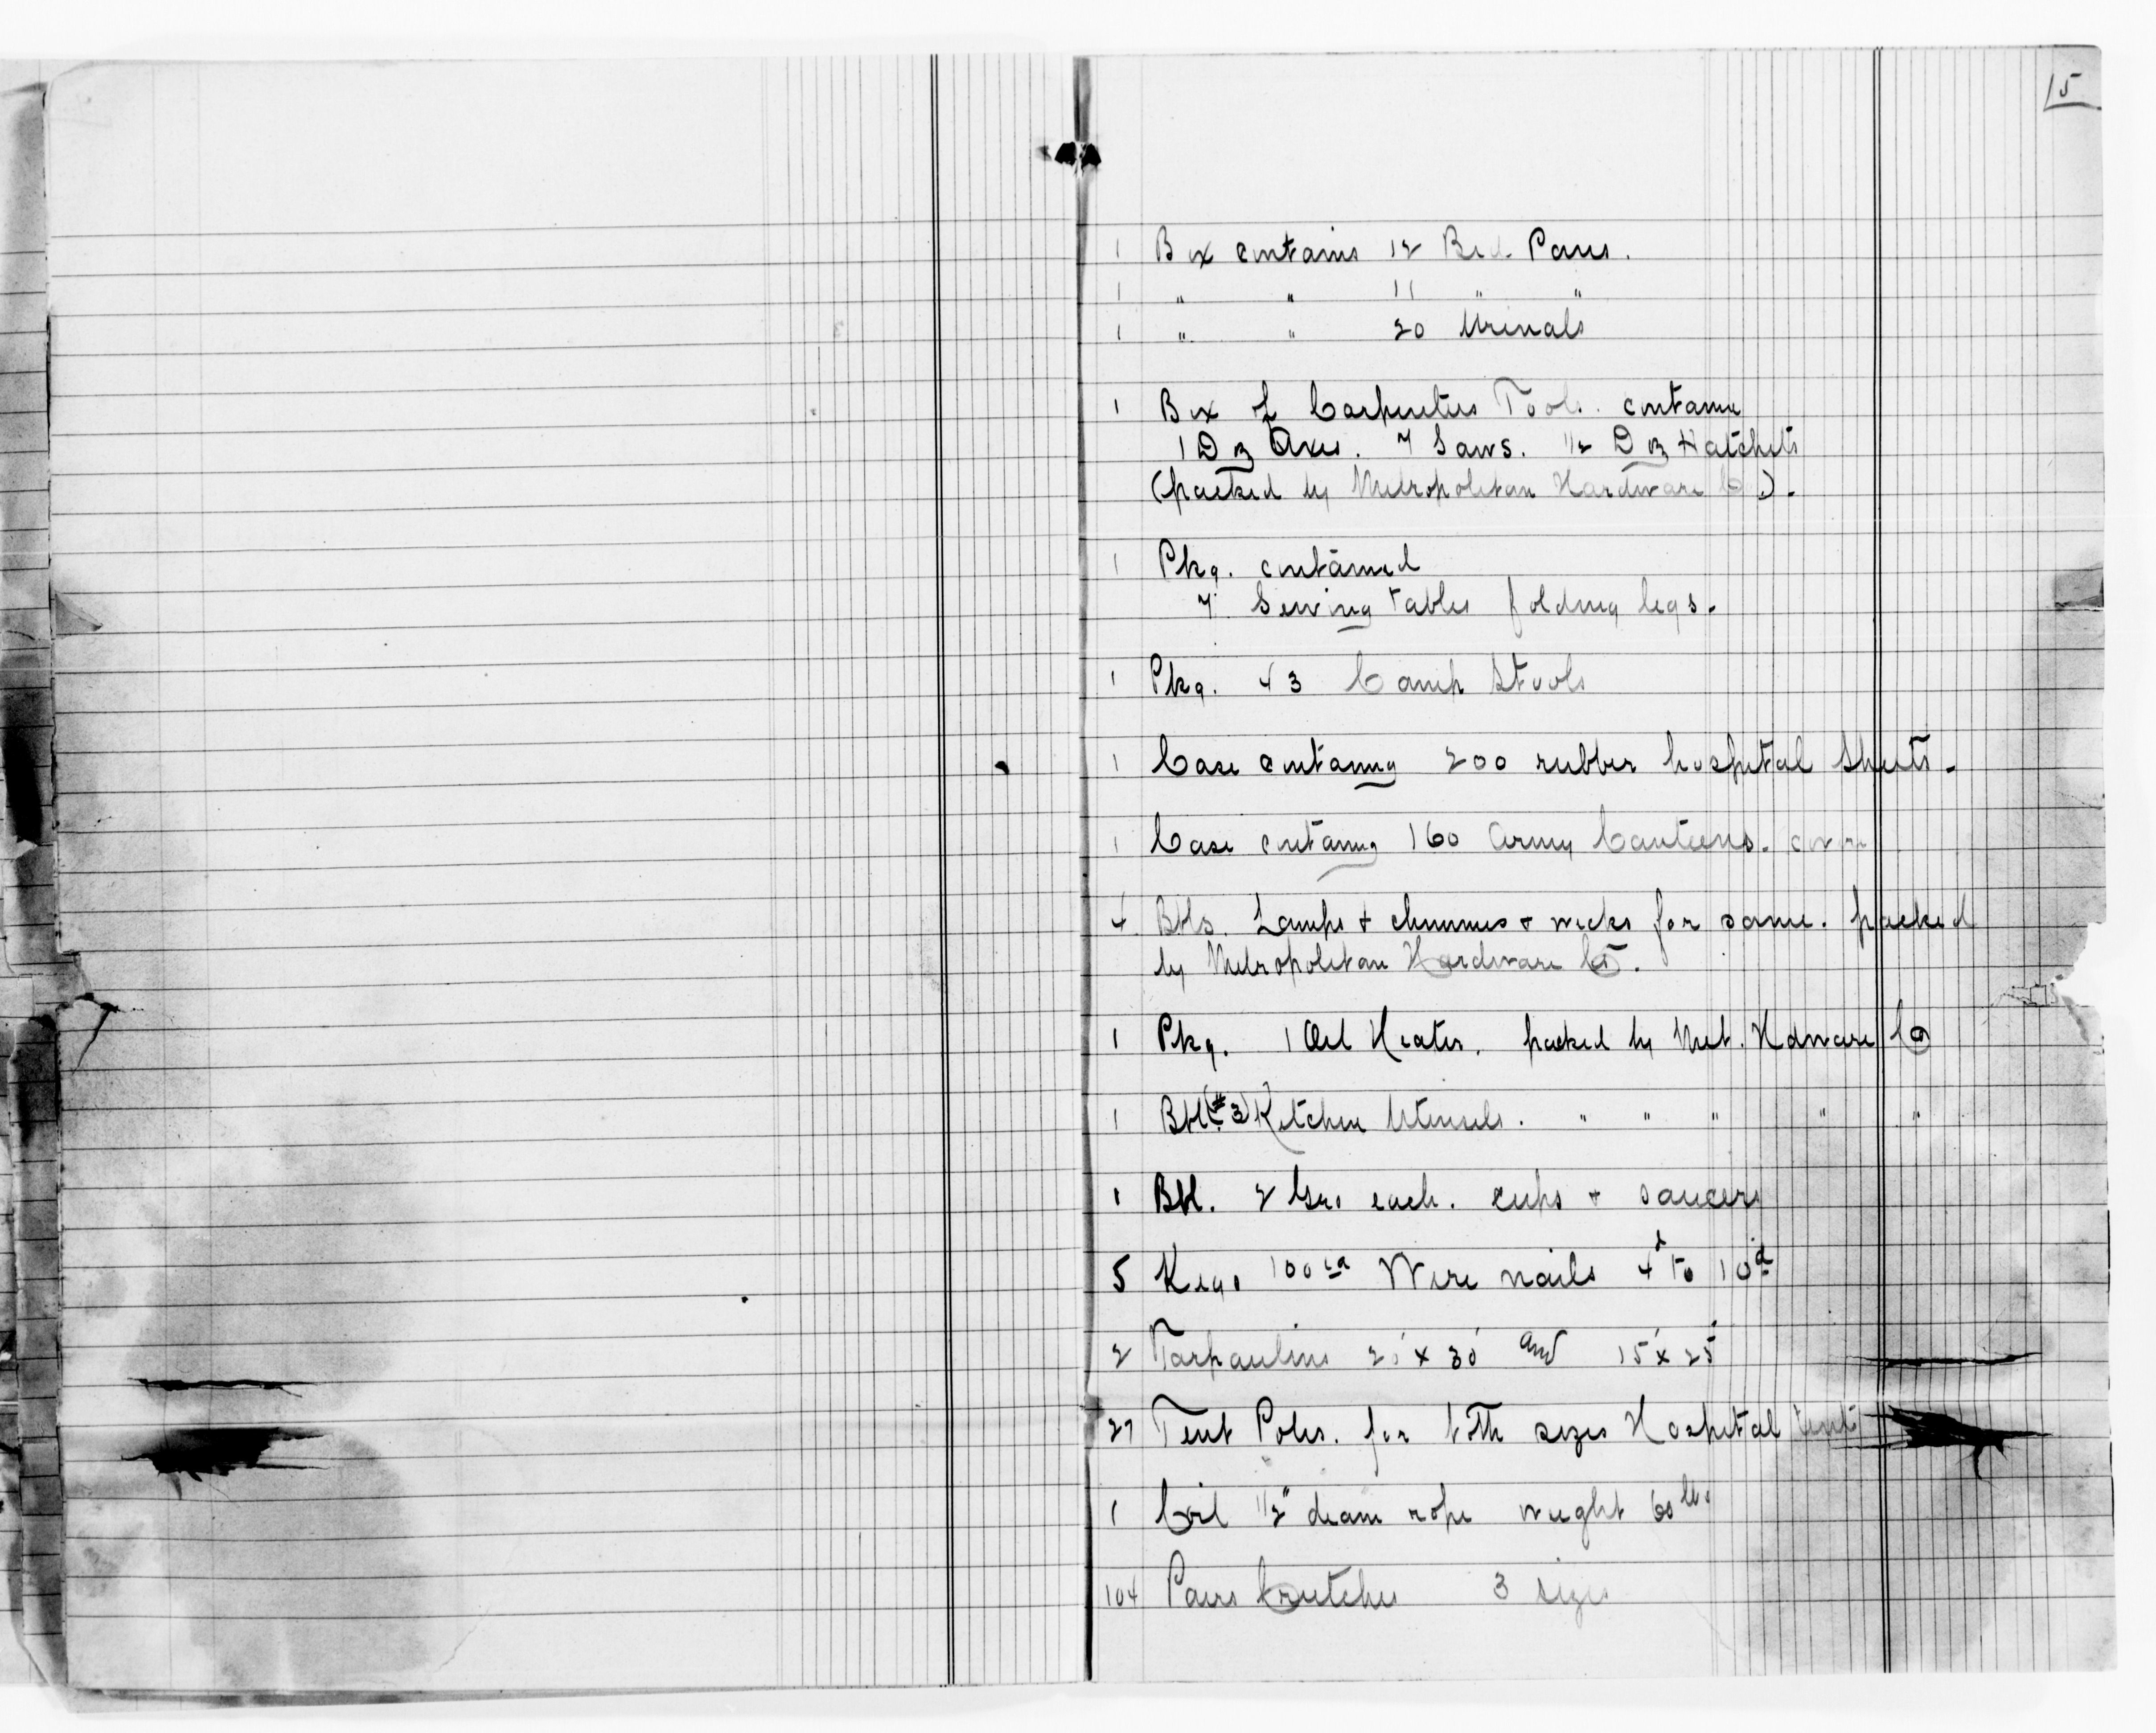 15
1 Box contains 12 Bed Pans.
1 " " 11 " "
1 " " 20 Urinals
1 Box of Carpenters Tools. contains
1 Doz Axes. 7 Saws. 1/2 Doz Hatchets
(packed by Metropolitan Hardware Co.).
1 Pkg. contained
7 Serving tables folding legs.
1 Pkg. 43 Camp Stools
1 Case containing 200 rubber hospital sheets.
1 Case containing 160 Army Canteens.
4 Bbls. Lamps + chimneys + wicks for same. packed
by Metropolitan Hardware Co.
1 Pkg. 1 Oil Heater. packed by Met. Hdware Co
1 Bbl (#3) Kitchen Utensils. " " " " "
1 Bbl. 2 Gro each. cups + saucers
5 Kegs 100 ea Wire nails 4d to 10d
2 Tarpaulins 20' x 30' and 15' x 25'
27 Tent Poles. for both sizes Hospital tents
1 Coil 1/2" diam rope weight 60 lbs
104 Pairs Crutches 3 sizes